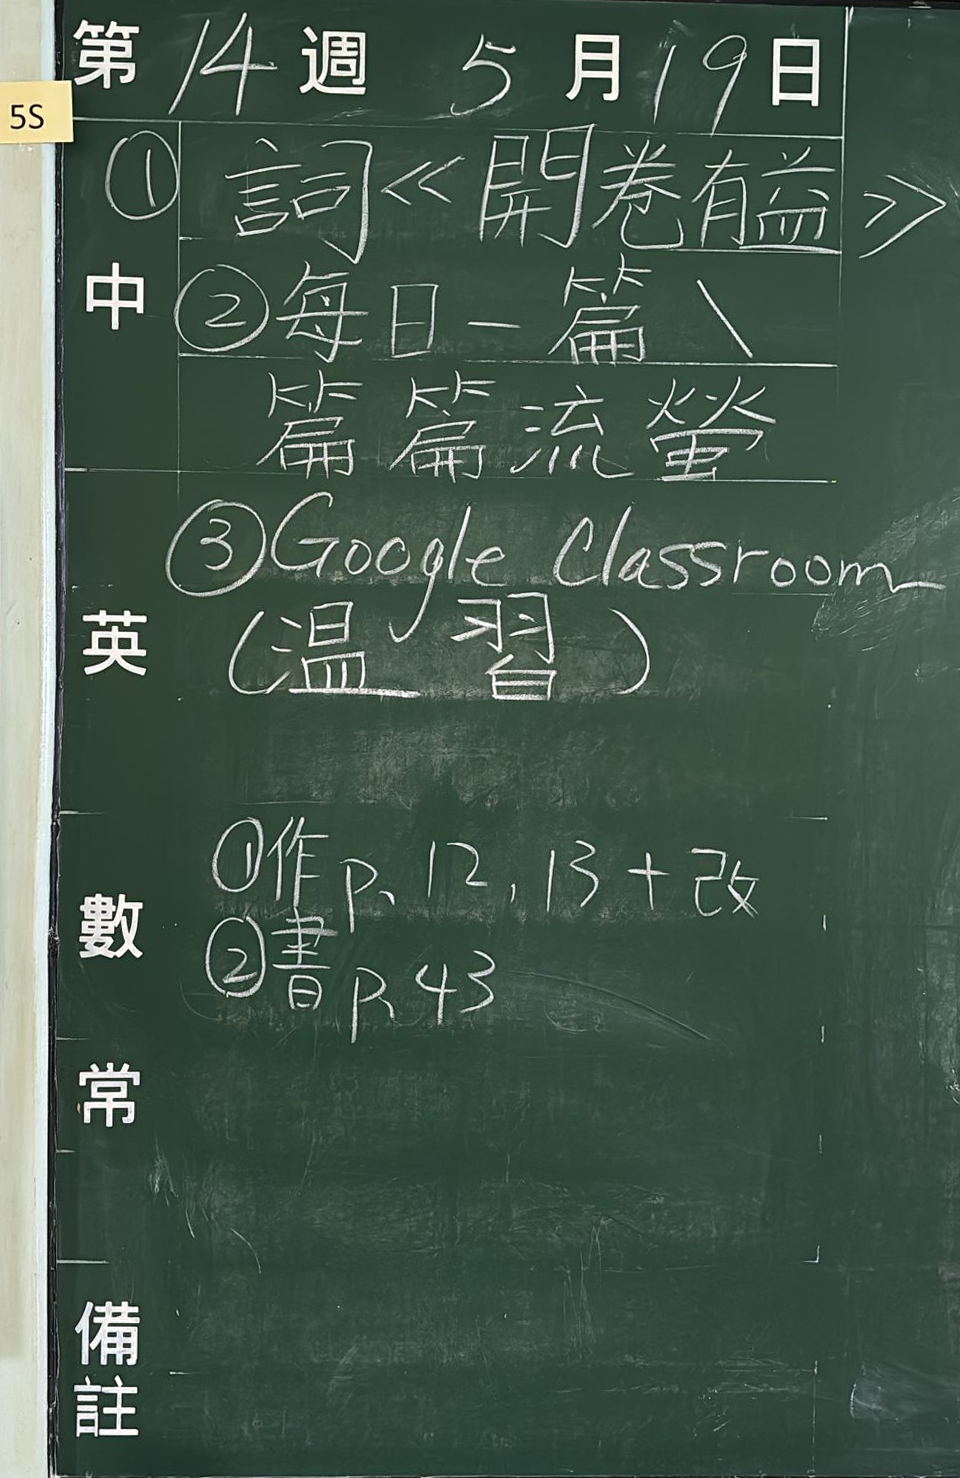 第14週 5月19日
5S
中
① 詞《開卷有益》
② 每日一篇\
篇篇流螢
英
③ Google Classroom
(温習)
數
① 作p.12,13+改
② 書p.43
常
備註